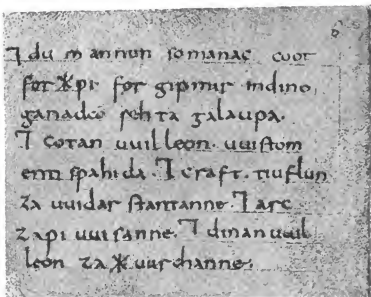 ⁊ du m annun somanac coot
for ᛡpi for gipmir indino
ganada rehta galaupa.
⁊ cotan uuilleon. uuistom
enti spahida. ⁊ craft. tiuflun
za uuidar stantanne. ⁊ arc
zapi uuisanne. ⁊ dinan uuil
leon za ᛡ uurchanne: